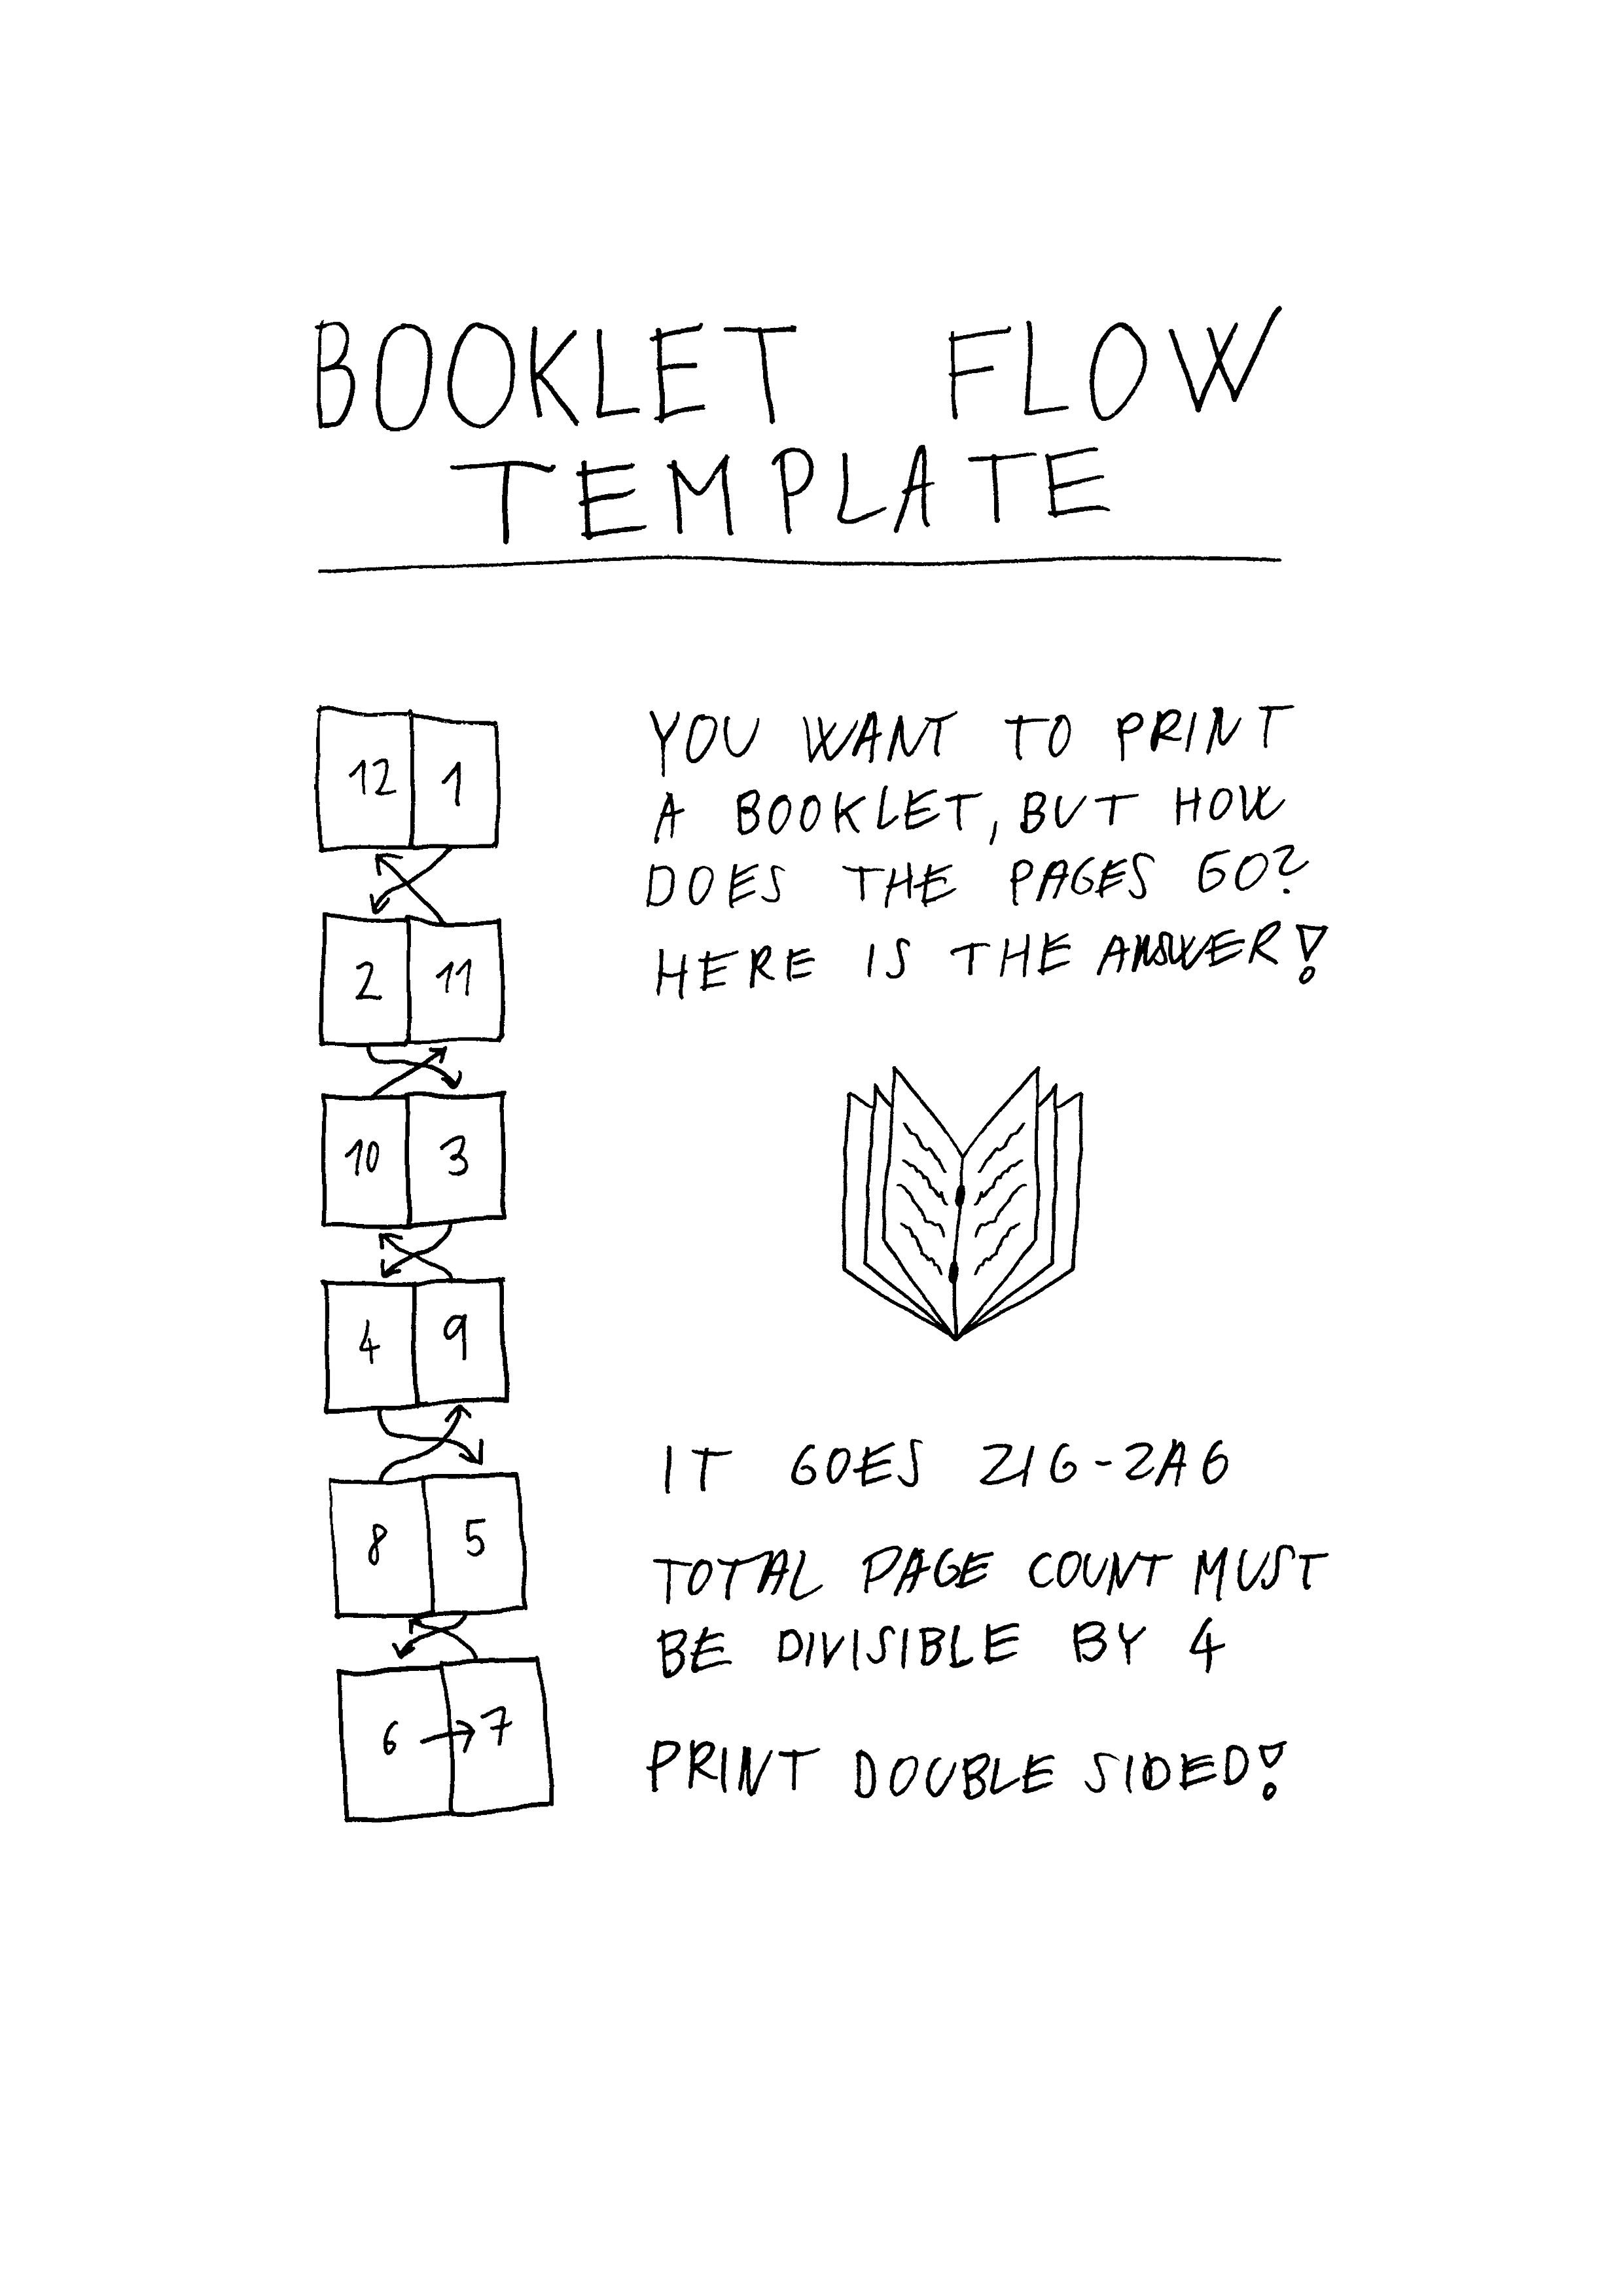 BOOKLET FLOW
TEMPLATE
12 1
2 11
10 3
4 9
8 5
6 → 7
YOU WANT TO PRINT
A BOOKLET, BUT HOW
DOES THE PAGES GO?
HERE IS THE ANSWER!
IT GOES ZIG-ZAG
TOTAL PAGE COUNT MUST
BE DIVISIBLE BY 4
PRINT DOUBLE SIDED!